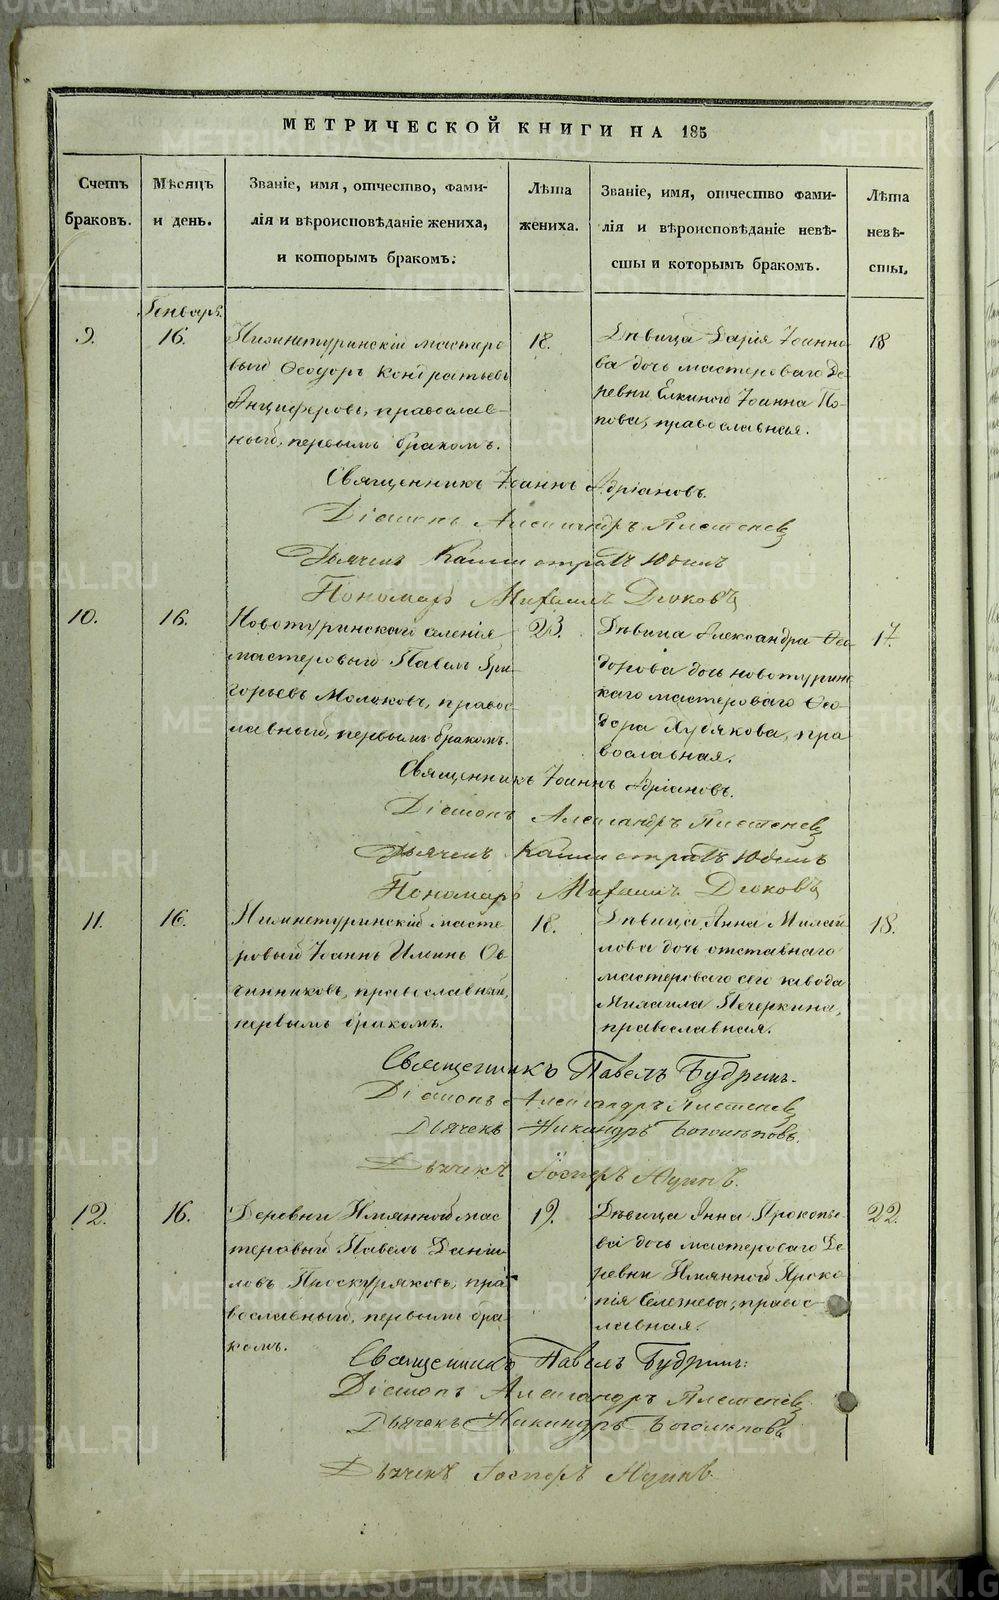 МЕТРИЧЕСКОЙ КНИГИ НА 185
Счетъ
браковъ.
Мѣсяцъ
и день.
Званіе, имя, отчество, фами-
лія и вѣроисповѣданіе жениха,
и которымъ бракомъ.
Лѣта
жениха.
Званіе, имя, отчество фами-
лія и вѣроисповѣданіе невѣ-
сты и которымъ бракомъ.
Лѣта
невѣ-
сты.
Генваря.
9.
16.
Нижнетуринскій мастеро
вый Ѳеодоръ Кондратьевъ
Анциферовъ, православ-
ный, первымъ бракомъ.
18.
Дѣвица Дарія Іоанно
ва дочь мастероваго де
ревни Елкиной Іоанна По-
пова, православная.
18
Священникъ Іоаннъ Адріановъ.
Діаконъ Александръ Плетеневъ
Дьячекъ Каллистратъ Юдинъ
Пономарь Михаилъ Дюковъ
10.
16.
Новотуринскаго селенія
мастеровый Павелъ Гри-
горьевъ Молоковъ, правос-
лавный, первымъ бракомъ.
23.
Дѣвица Александра Ѳео-
дорова дочь новотурин
скаго мастероваго Ѳео-
дора Худякова, пра
вославная.
17.
Священникъ Іоаннъ Адріановъ.
Діаконъ Александръ Плетеневъ
Дьячекъ Каллистратъ Юдинъ
Пономарь Михаилъ Дюковъ
11.
16.
Нижнетуринскій масте
ровый Іоаннъ Ильинъ Ов
чинниковъ, православный,
первымъ бракомъ.
18.
Дѣвица Анна Михай
лова дочь отставнаго
мастероваго сего завода
Михаила Печеркина,
православная.
18.
Священникъ Павелъ Будринъ.
Діаконъ Александръ Плетеневъ
Дьячекъ Никандръ Боголѣповъ.
Дьячекъ
12.
16.
Деревни Имянной мас
теровый Павелъ Дании
ловъ Проскуряковъ, пра
вославный, первымъ бра
комъ.
19.
Дѣвица Анна Прокопье
ва дочь мастероваго де
ревни Имянной Проко
пія Селезнева, правос-
лавная.
22.
Священникъ Павелъ Будринъ:
Діаконъ Александръ Плетеневъ
Дьячекъ Никандръ Боголѣповъ
Дьячекъ
METRIKI.GASO-URAL.RU